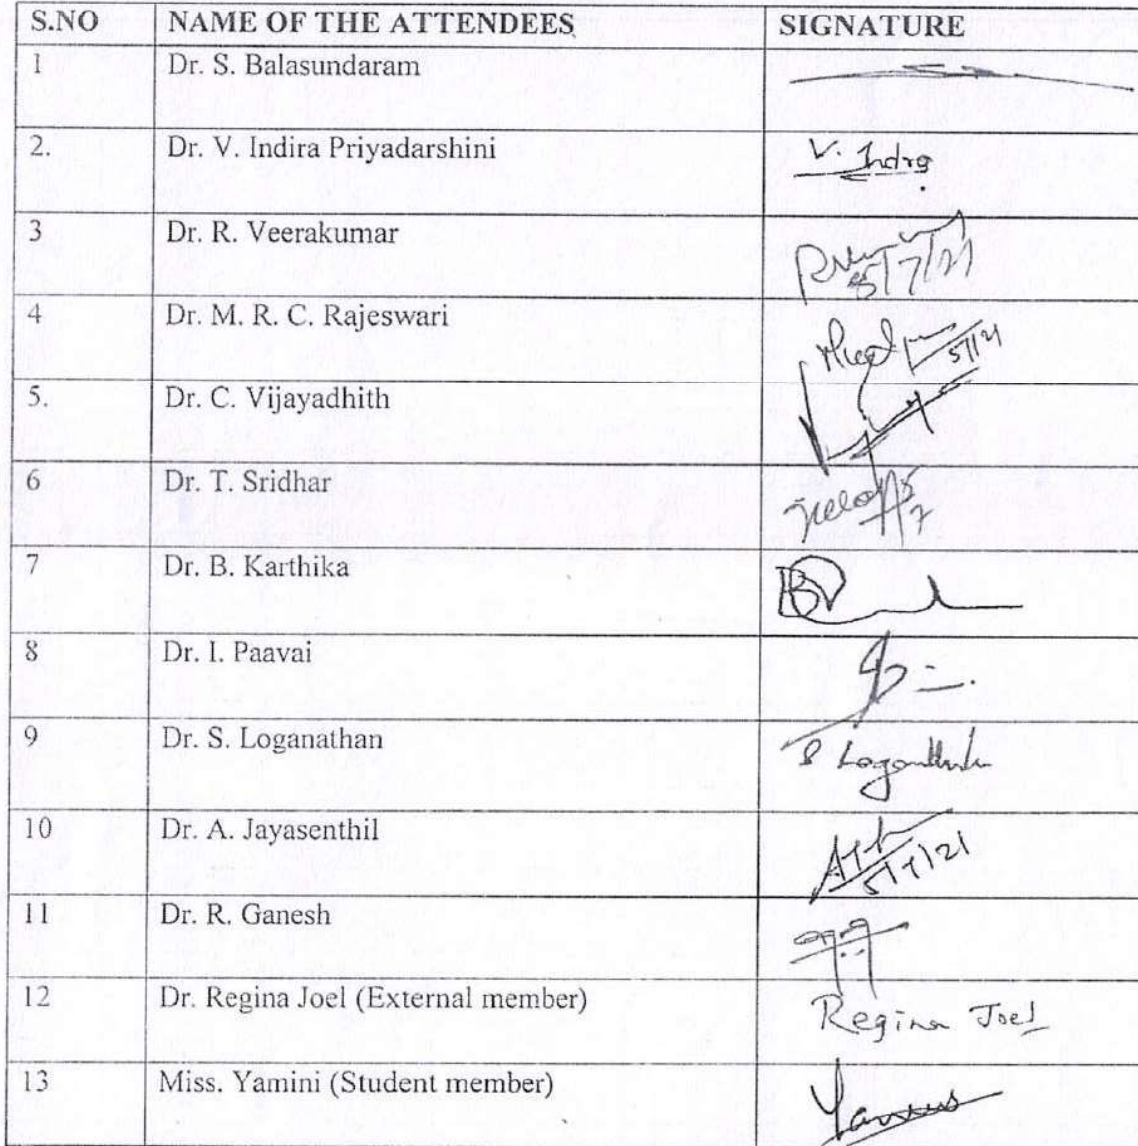 S.NO NAME OF THE ATTENDEES SIGNATURE
1 Dr. S. Balasundaram
2. Dr. V. Indira Priyadarshini V. Indra
3 Dr. R. Veerakumar 5/7/21
4 Dr. M. R. C. Rajeswari 5/7/21
5. Dr. C. Vijayadhith
6 Dr. T. Sridhar 5/7
7 Dr. B. Karthika
8 Dr. I. Paavai
9 Dr. S. Loganathan S Loganathan
10 Dr. A. Jayasenthil 5/7/21
11 Dr. R. Ganesh
12 Dr. Regina Joel (External member) Regina Joel
13 Miss. Yamini (Student member)